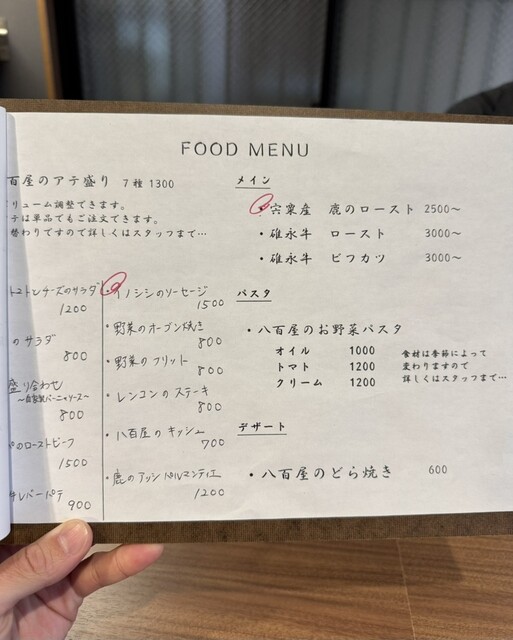 FOOD MENU
百屋のアテ盛り 7種 1300
リューム調整できます。
テは単品でもご注文できます。
替わりですので詳しくはスタッフまで…
トマトとチーズのサラダ
1200
のサラダ
800
盛り合わせ
〜自家製バーニャソース〜
800
のローストビーフ
1500
レバーパテ
900
・イノシシのソーセージ
1500
・野菜のオーブン焼き
800
・野菜のフリット
800
・レンコンのステーキ
800
・八百屋のキッシュ
700
・鹿のアッシパルマンティエ
1200
メイン
・宍粟産 鹿のロースト 2500〜
・碓永牛 ロースト 3000〜
・碓永牛 ビフカツ 3000〜
パスタ
・八百屋のお野菜パスタ
オイル 1000
トマト 1200
クリーム 1200
食材は季節によって
変わりますので
詳しくはスタッフまで…
デザート
・八百屋のどら焼き 600